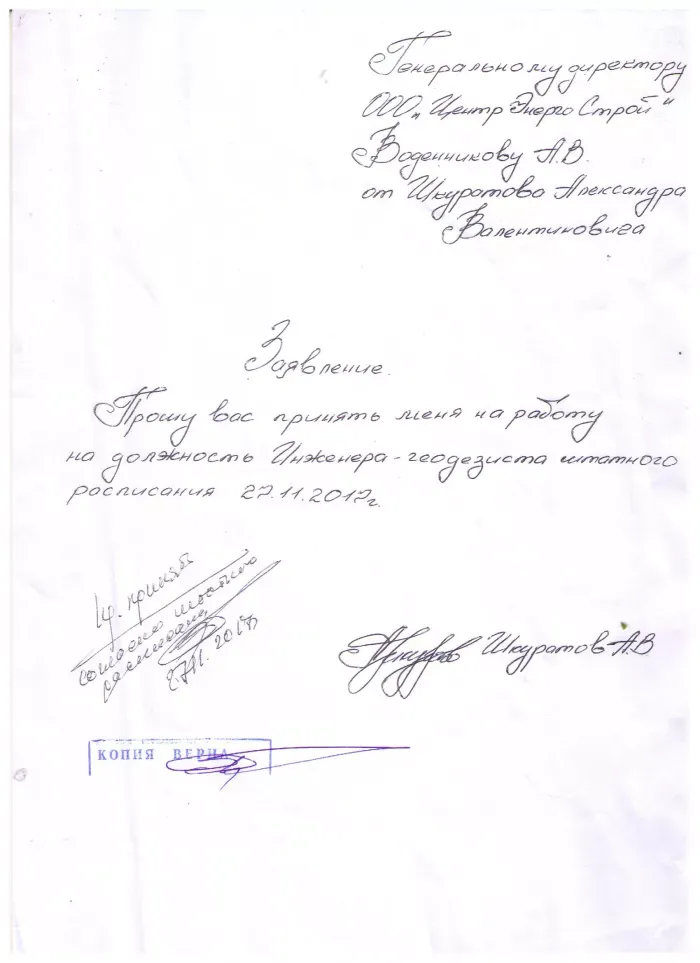 Генеральному директору
ООО „Центр Энерго Строй"
Воденникову А.В.
от Шкуратова Александра
Валентиновича
Заявление.
Прошу вас принять меня на работу
на должность Инженера-геодезиста штатного
расписания 27.11.2017г.
принять
согласно штатного
расписания
27.11.2017
Шкуратов А.В
КОПИЯ ВЕРНА